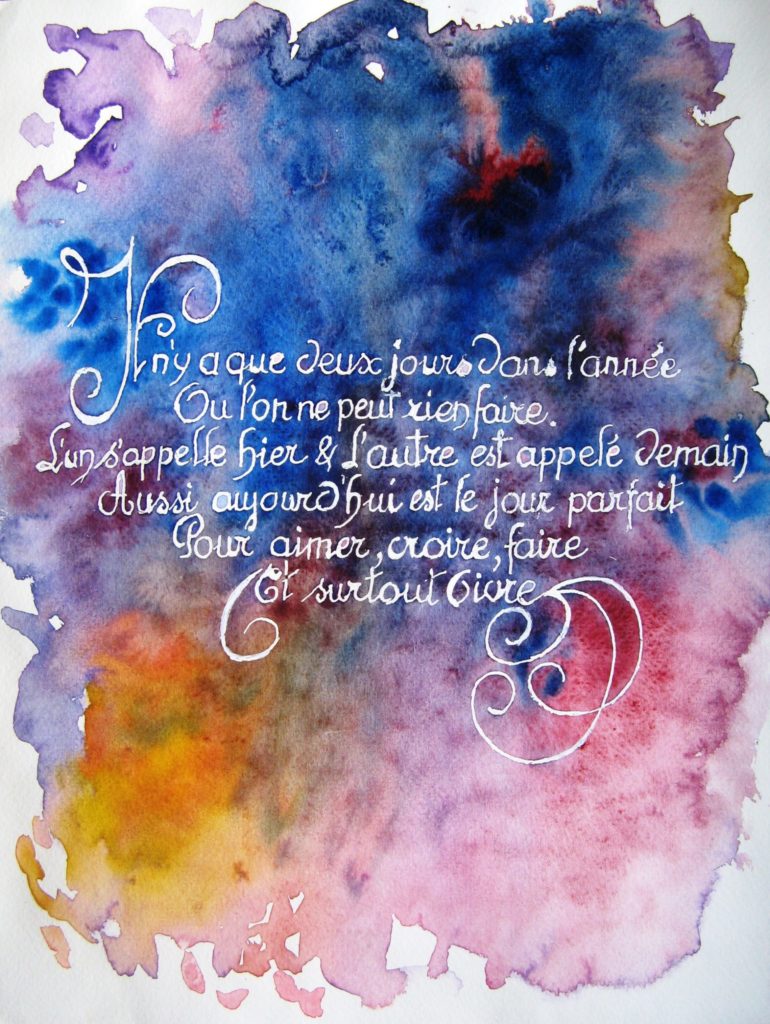 Il n'y a que deux jours dans l'année
Ou l'on ne peut rien faire.
L'un s'appelle hier & L'autre est appelé demain
Aussi aujourd'hui est le jour parfait
Pour aimer, croire, faire
Et surtout Vivre